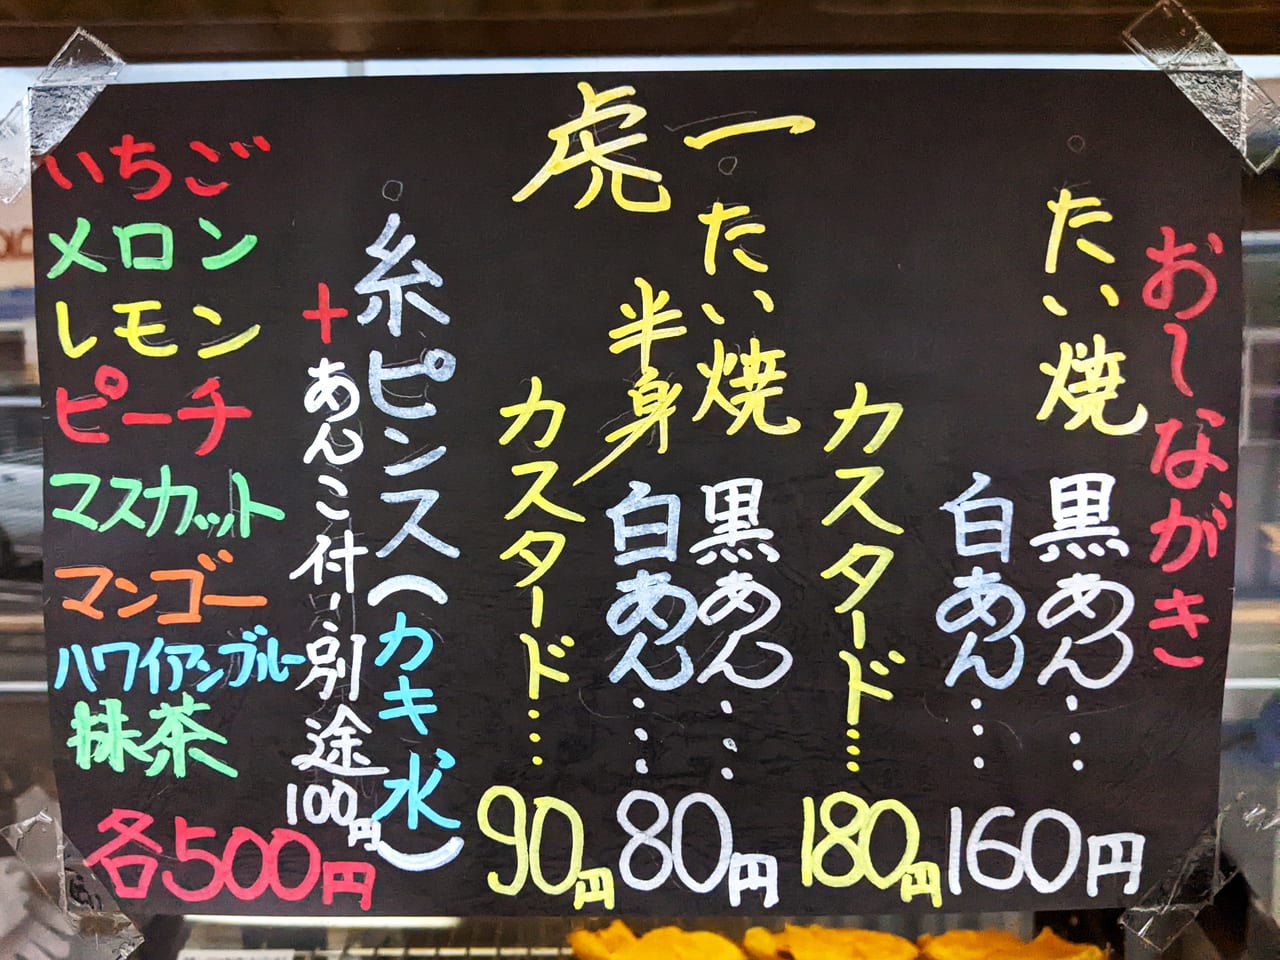 虎一
おしながき
たい焼
黒あん…
白あん…
160円
カスタード…
180円
たい焼
半身
黒あん…
白あん…
80円
カスタード…
90円
糸ピンス(カキ氷)
+あんこ付!別途
100円
いちご
メロン
レモン
ピーチ
マスカット
マンゴー
ハワイアンブルー
抹茶
各500円